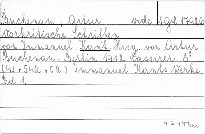 Buchenau, Artur vide
Vorkritische Schriften
von Immanuel Kant. Hrsg. von Artur
Buchenau. Berlin 1912 Cassirer 8°
Immanuel Kants Werke
Bd 1